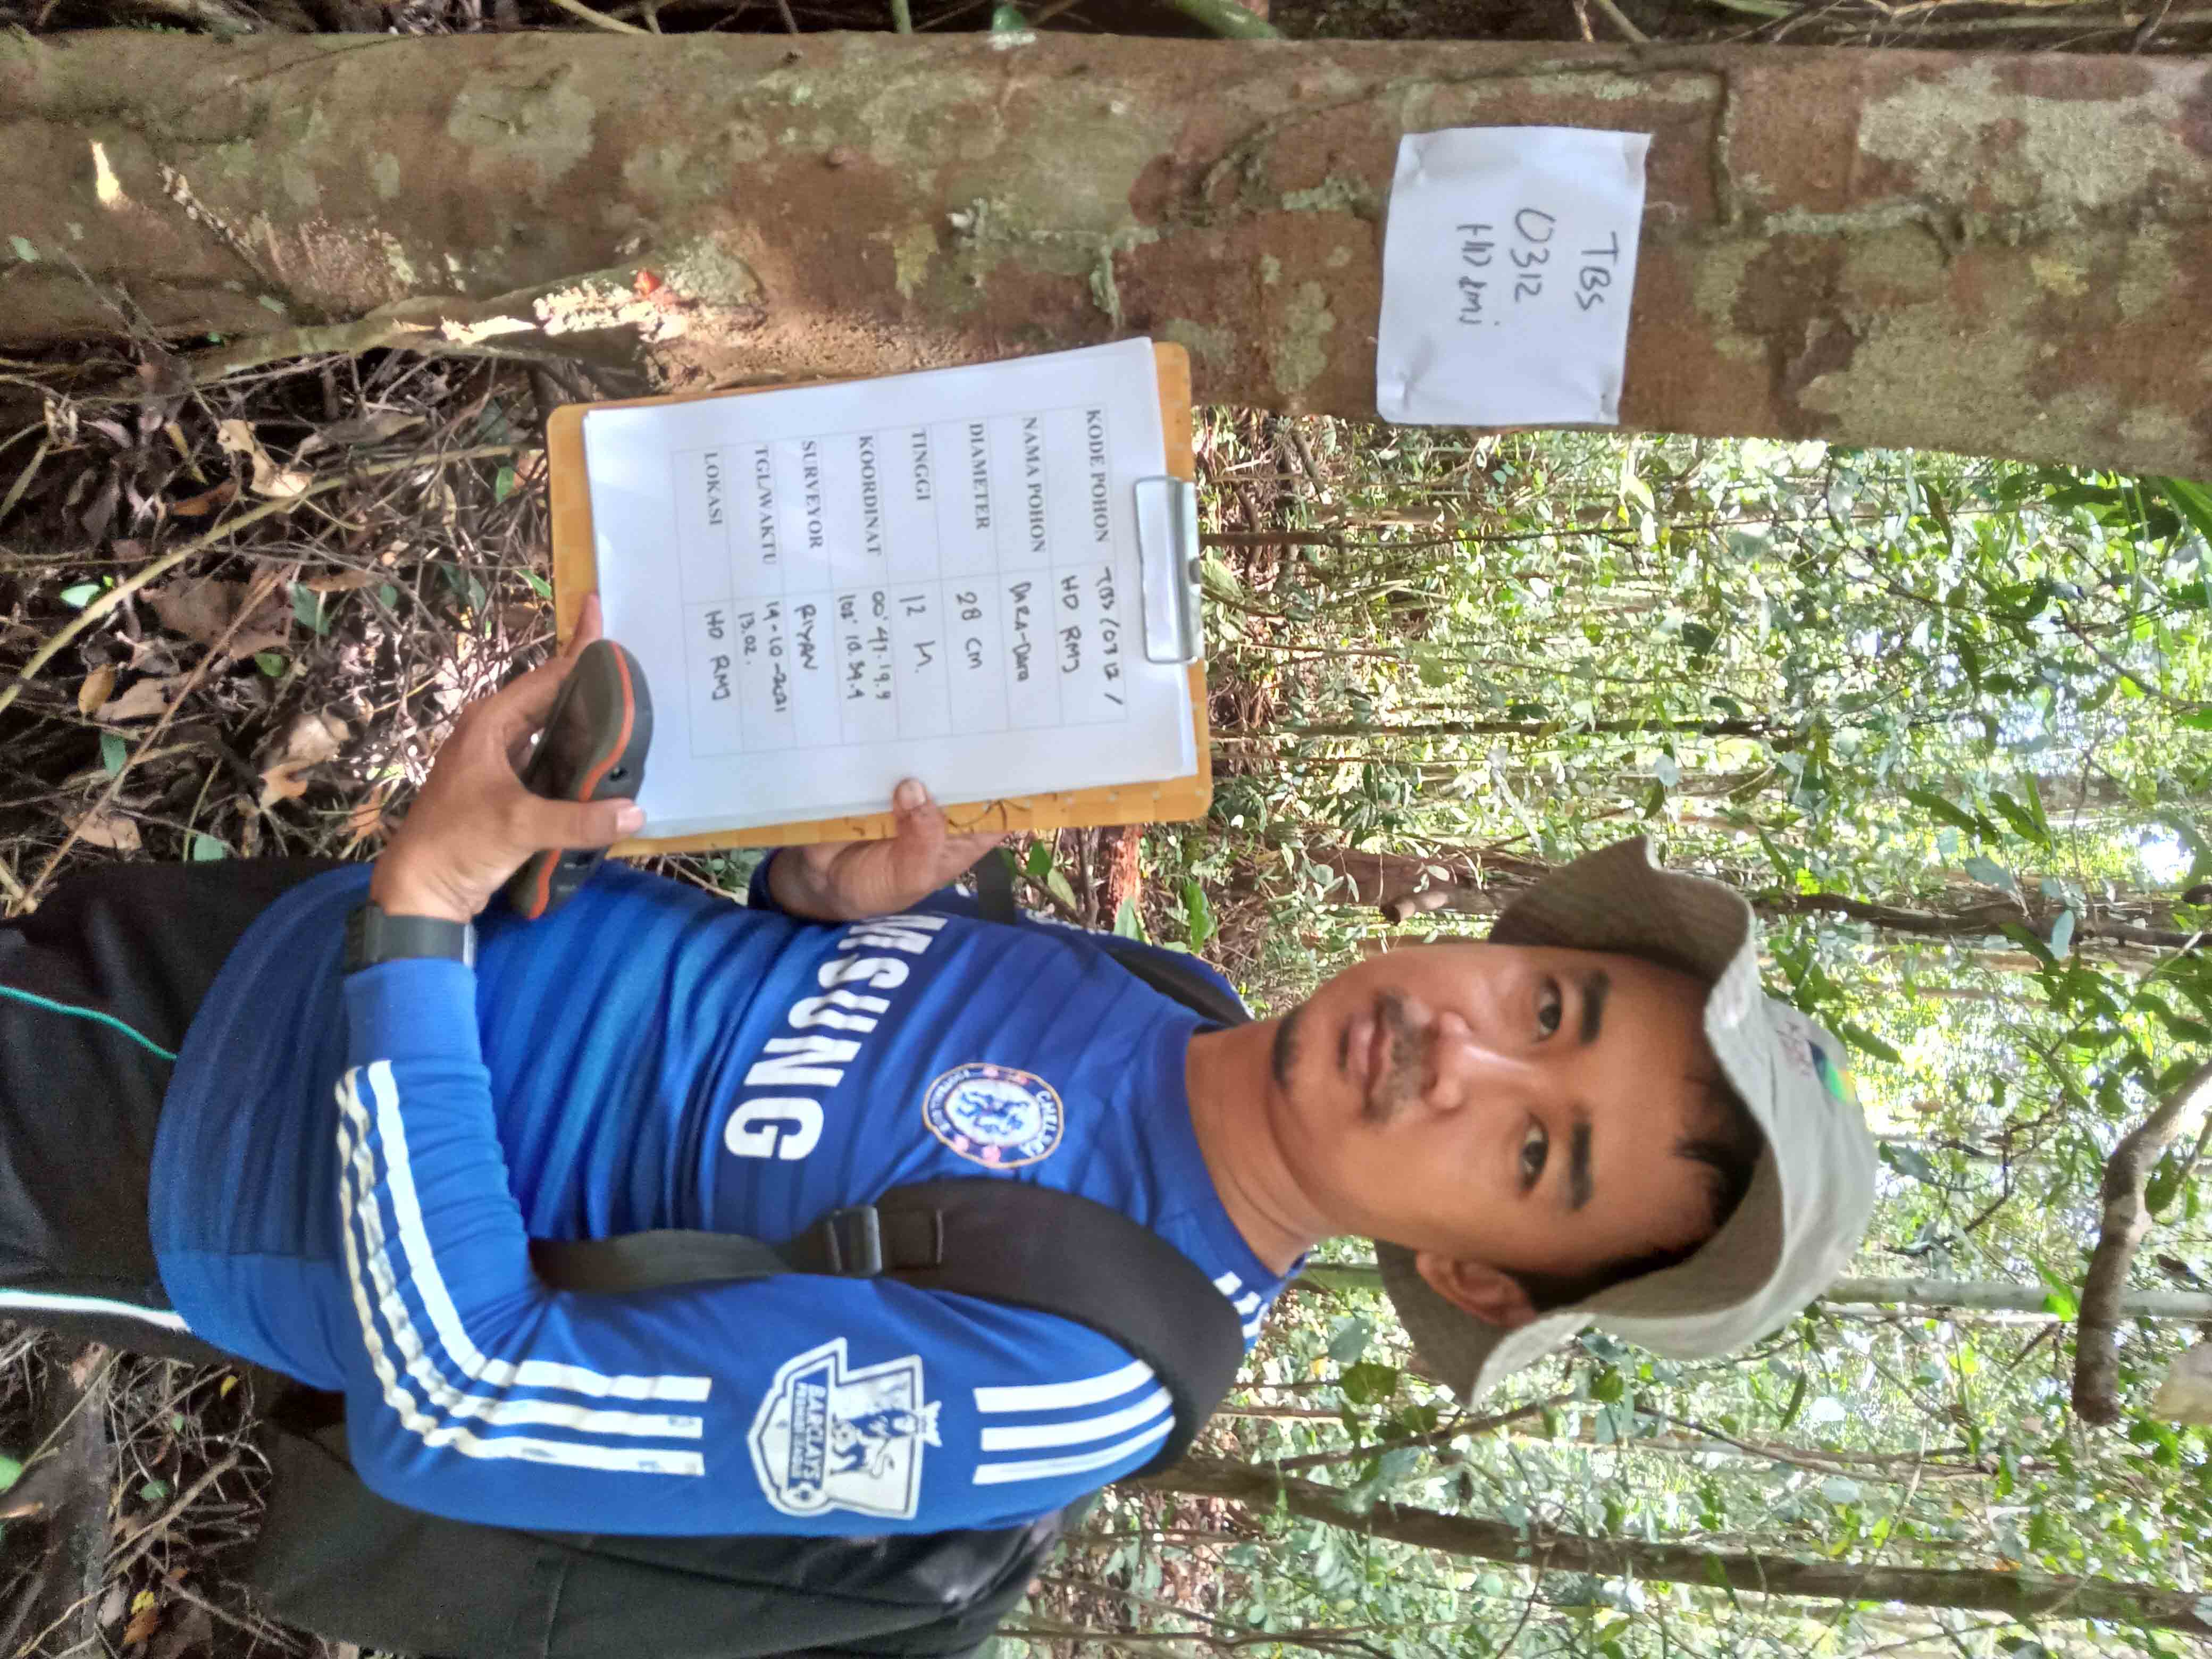 TBS
0312
HD RMJ
KODE POHON TBS/0312/
HD RMJ
NAMA POHON DARA-DARA
DIAMETER 28 CM
TINGGI 12 M.
KOORDINAT
SURVEYOR RIYAN
TGL/WAKTU 19-10-2021
13.02.
LOKASI HD RMJ
CHELSEA
FOOTBALL CLUB
MSUNG
BARCLAYS
PREMIER LEAGUE